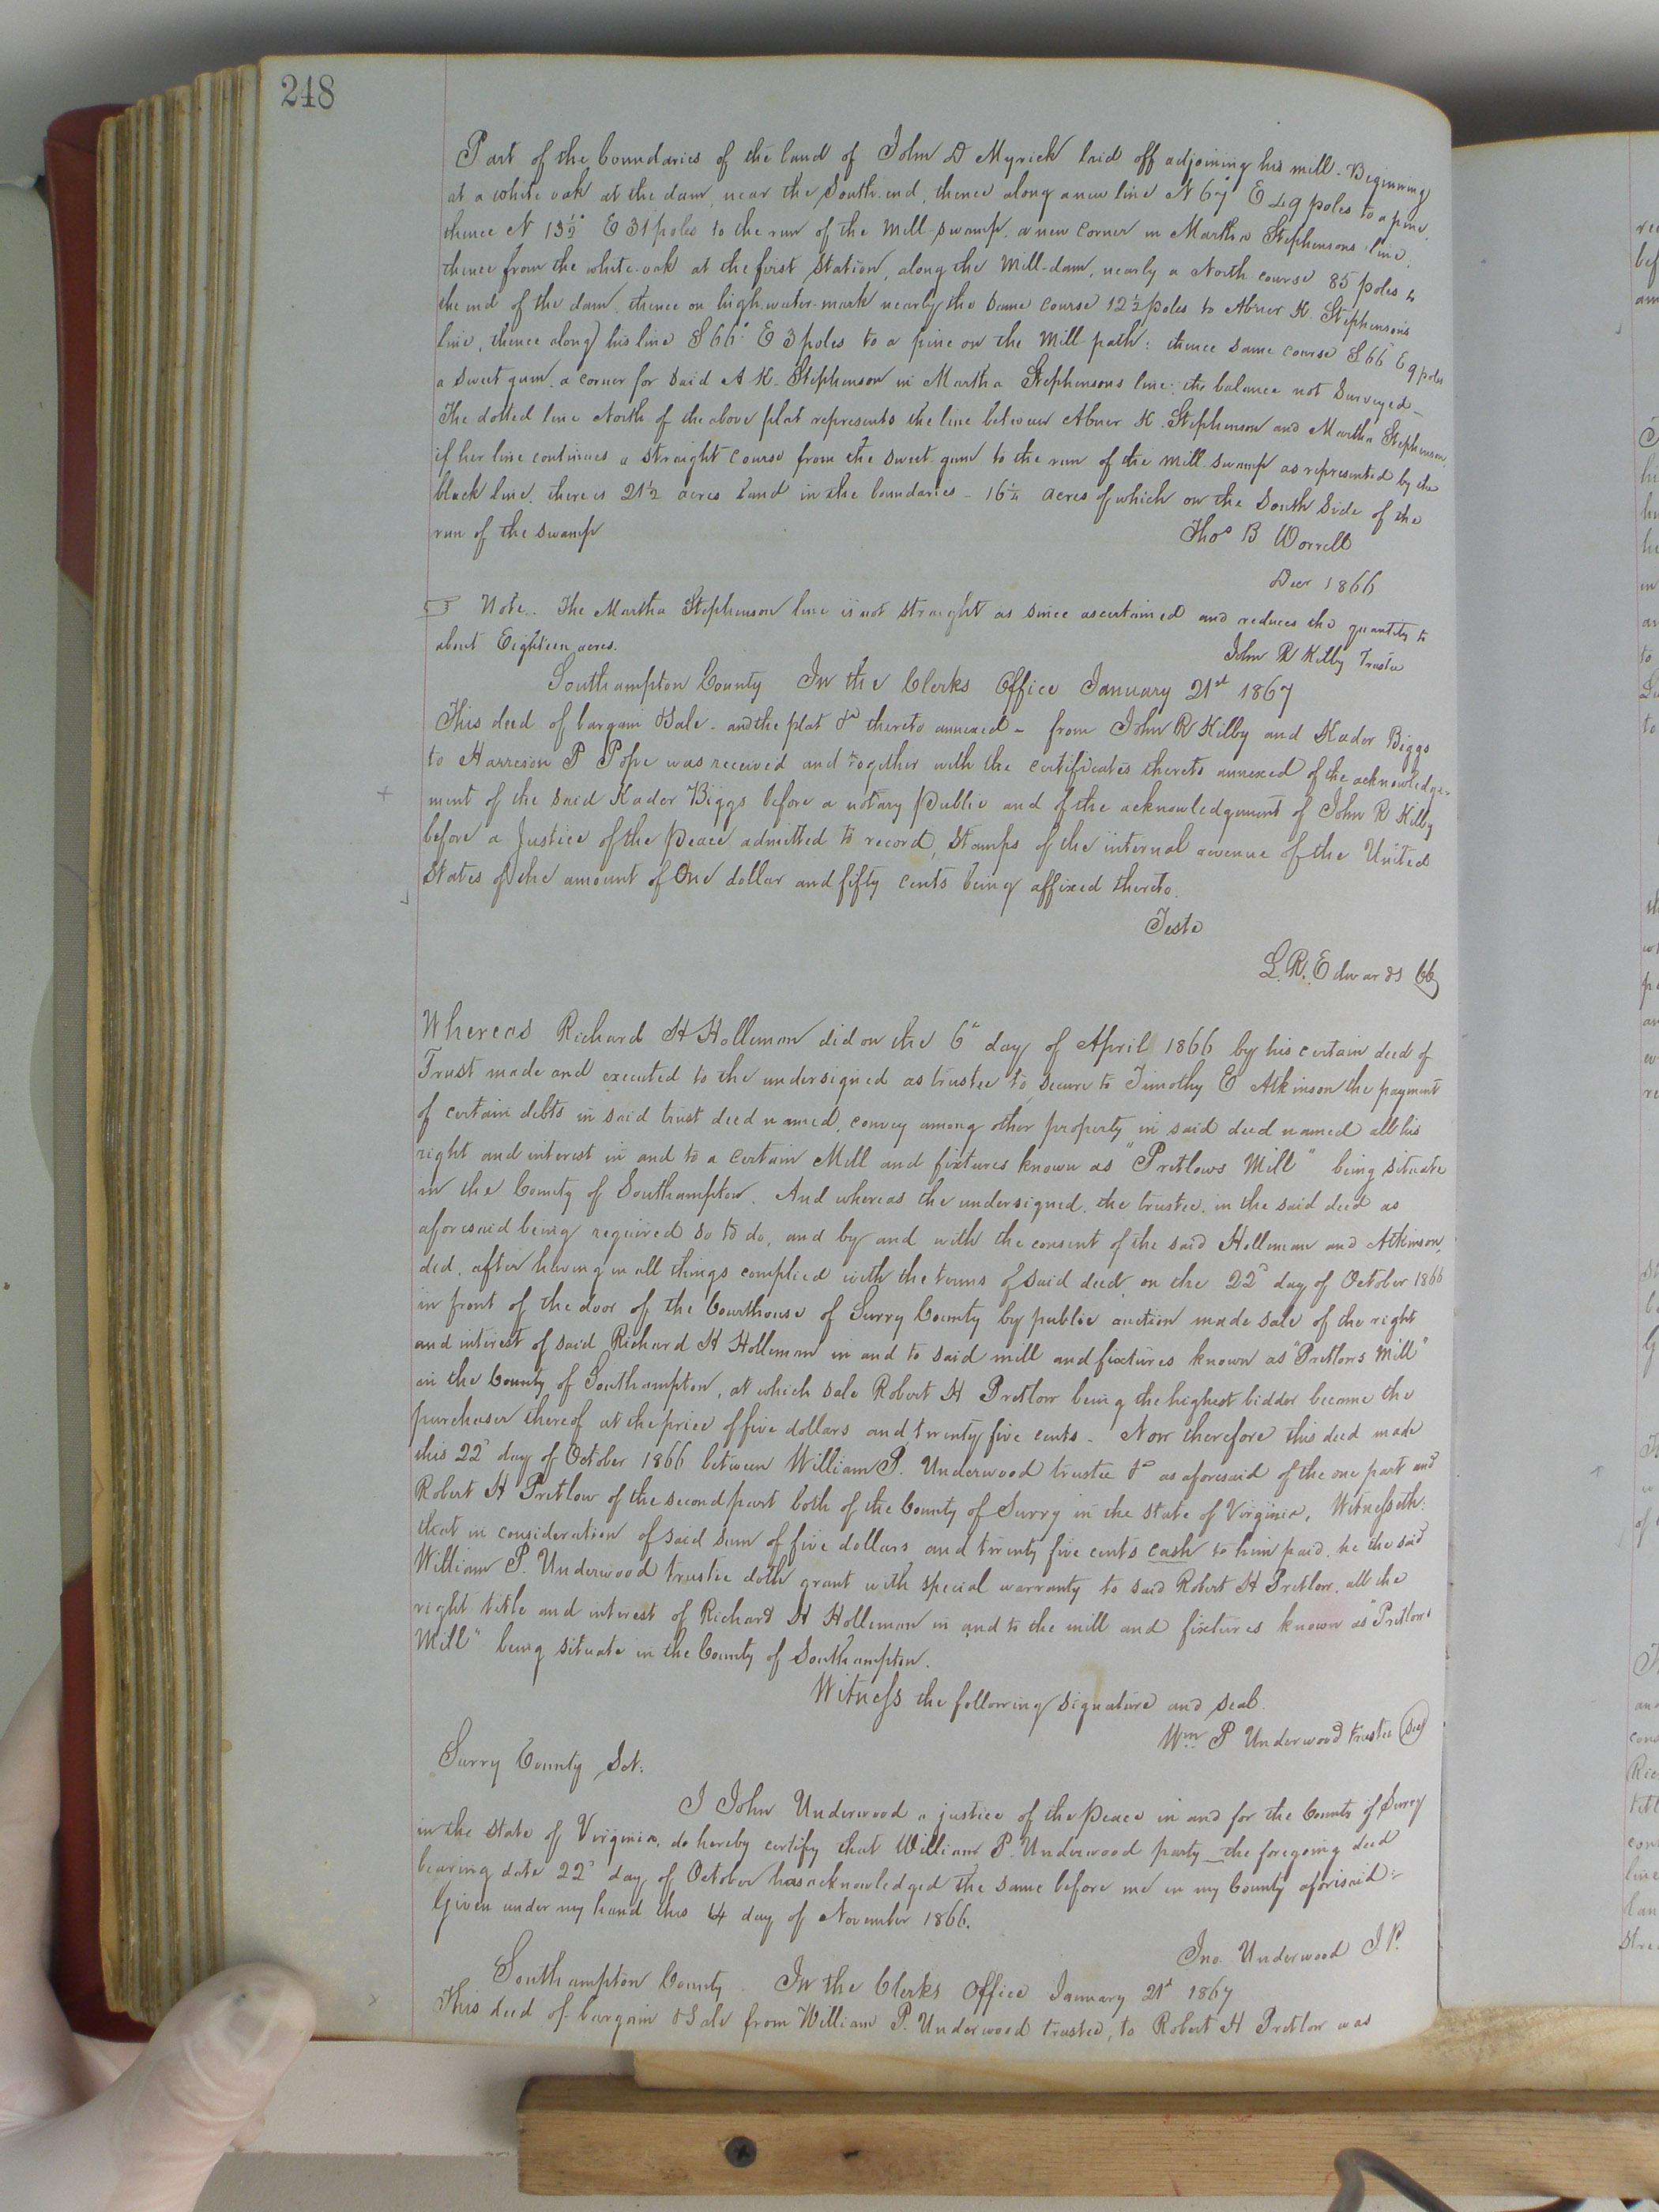 248
Part of the boundaries of the land of John D Myrick laid off adjoining his mill - Beginning
at a white oak at the dam, near the South end, thence along a new line N 67° E 49 poles to a pine,
thence N 13½° E 31 poles to the run of the Mill-swamp, a new corner in Martha Stephensons line,
thence from the white-oak at the first Station, along the Mill-dam, nearly a North course 85 poles to
the end of the dam, thence on high-water-mark nearly the same course 12½ poles to Abner K. Stephensons
line, thence along his line S 66° E 3 poles to a pine on the Mill path: thence same course S 66° E 9 poles
a sweet gum, a corner for said A K. Stephenson in Martha Stephensons line: the balance not surveyed -
The dotted line North of the above plat represents the line between Abner K. Stephenson and Martha Stephenson,
if her line continues a straight course from the sweet-gum to the run of the mill swamp as represented by the
black line. there is 21½ acres land in the boundaries - 16¼ acres of which on the South Side of the
run of the swamp
Thos B Worrell
Decr 1866
☞ Note.. The Martha Stephenson line is not straight as since ascertained and reduces the quantity to
about Eighteen acres.
John R Kilby Trustee
Southampton County In the Clerks Office January 21st 1867
This deed of bargain & Sale - and the plat &c thereto annexed - from John R Kilby and Kader Biggs
to Harrison P Pope was received and together with the certificates thereto annexed of the acknowledge-
ment of the said Kader Biggs before a notary Public and of the acknowledgement of John R Kilby
before a Justice of the Peace admitted to record, Stamps of the internal revenue of the United
States of the amount of One dollar and fifty cents being affixed thereto.
Teste
L. R. Edwards CC
Whereas Richard H Holleman did on the 6th day of April 1866 by his certain deed of
Trust made and executed to the undersigned as trustee to secure to Timothy E Atkinson the payment
of certain debts in said trust deed named, convey among other property in said deed named all his
right and interest in and to a certain Mill and fixtures known as "Pretlows Mill" being situate
in the County of Southampton. And whereas the undersigned, the trustee, in the said deed as
aforesaid being required so to do, and by and with the consent of the said Holleman and Atkinson,
did, after having in all things complied with the terms of said deed, on the 22d day of October 1866
in front of the door of the Courthouse of Surry County by public auction made sale of the right
and interest of said Richard H Holleman in and to said mill and fixtures known as "Pretlows Mill"
in the County of Southampton, at which sale Robert H Pretlow being the highest bidder became the
purchaser thereof at the price of five dollars and twenty five cents - Now therefore this deed made
this 22d day of October 1866 between William P. Underwood trustee &c as aforesaid of the one part and
Robert H Pretlow of the second part both of the County of Surry in the State of Virginia, Witnesseth:
that in consideration of said sum of five dollars and twenty five cents cash to him paid, he the said
William P. Underwood trustee doth grant with special warranty to said Robert H Pretlow, all the
right title and interest of Richard H Holleman in and to the mill and fixtures known as "Pretlows
Mill" being situate in the County of Southampton.
Witness the following signature and seal.
Wm P Underwood trustee (Seal)
Surry County Sct.
I John Underwood a justice of the Peace in and for the County of Surry
in the State of Virginia, do hereby certify that William P. Underwood party _ the foregoing deed
bearing date 22d day of October has acknowledged the same before me in my County aforesaid:-
Given under my hand this 14 day of November 1866.
Jno. Underwood J.P.
Southampton County. In the Clerks Office January 21st 1867
This deed of bargain & Sale from William P. Underwood trustee, to Robert H Pretlow was